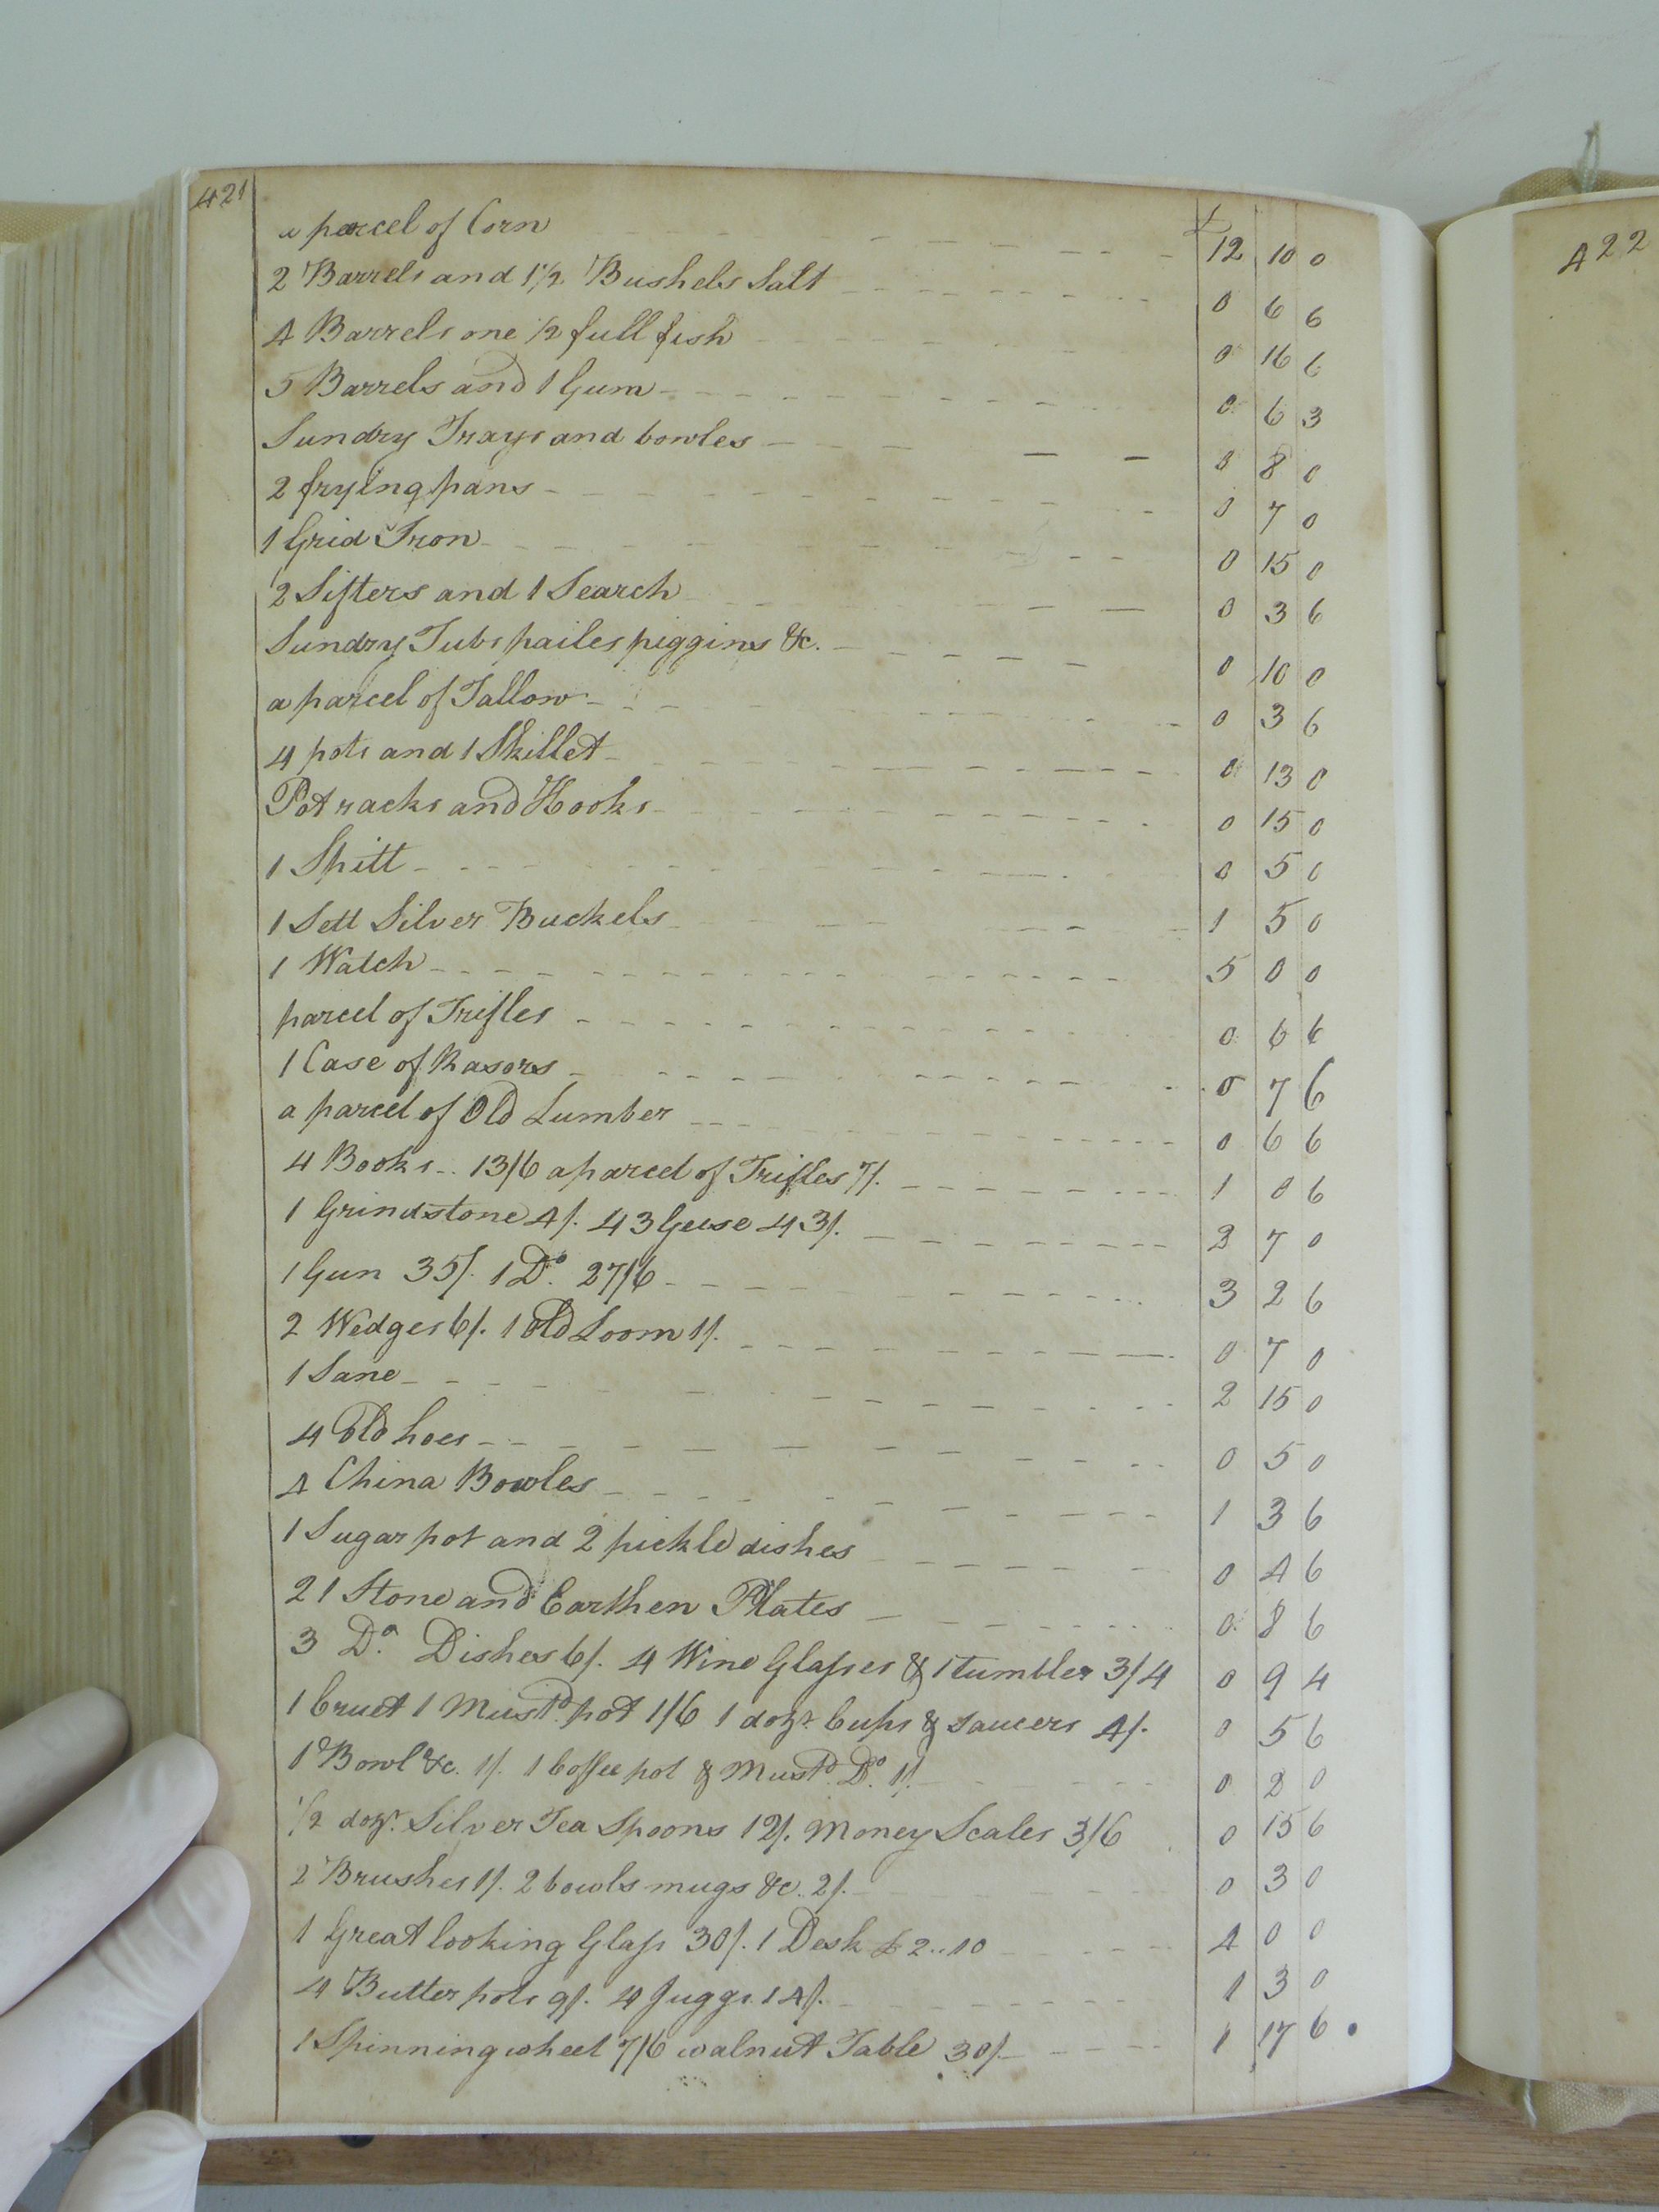 421
£
a parcel of Corn 12 10 0
2 Barrels and 1 1/2 Bushels Salt 0 6 6
4 Barrels one 1/2 full fish 0 16 6
5 Barrels and 1 Gum 0 6 3
Sundry Trays and bowles 0 8 0
2 frying pans 0 7 0
1 Grid Iron 0 15 0
2 Sifters and 1 Search 0 3 6
Sundry Tubs pailes piggins &c. 0 10 0
a parcel of Tallow 0 3 6
4 pots and 1 Skillet 0 13 0
Pot racks and Hooks 0 15 0
1 Spitt 0 5 0
1 Sett Silver Buckels 1 5 0
1 Watch 5 0 0
parcel of Trifles 0 6 6
1 Case of Rasors 0 7 6
a parcel of Old Lumber 0 6 6
4 Books 13/6 a parcel of Trifles 7/. 1 0 6
1 Grindstone 4/. 43 Geese 43/. 2 7 0
1 Gun 35/. 1 Do. 27/6 3 2 6
2 Wedges 6/. 1 old Loom 1/. 0 7 0
1 Sane 2 15 0
4 Old hoes 0 5 0
4 China Bowles 1 3 6
1 Sugar pot and 2 pickle dishes 0 4 6
21 Stone and Earthen Plates 0 8 6
3 Do. Dishes 6/. 4 Wine Glasses & 1 tumbler 3/4 0 9 4
1 Cruet 1 Mustd. pot 1/6 1 dozn. Cups & saucers 4/. 0 5 6
1 Bowl &c. 1/. 1 Coffee pot & Mustd. Do. 1/. 0 2 0
1/2 dozn. Silver Tea Spoons 12/. Money Scales 3/6 0 15 6
2 Brushes 1/. 2 bowls mugs &c. 2/. 0 3 0
1 Great looking Glass 30/. 1 Desk £2..10 4 0 0
4 Butter pots 9/. 4 Juggs 14/. 1 3 0
1 Spinning wheel 7/6 walnut Table 30/ 1 17 6
422